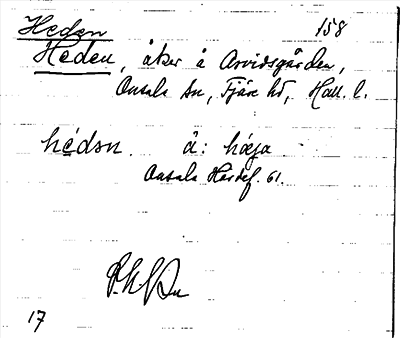 Heden 158
Heden, åker å Arvidsgården,
Onsala sn, Fjäre hd, Hall. l.
hédən. å: högja
Onsala Hardef. 61.
17